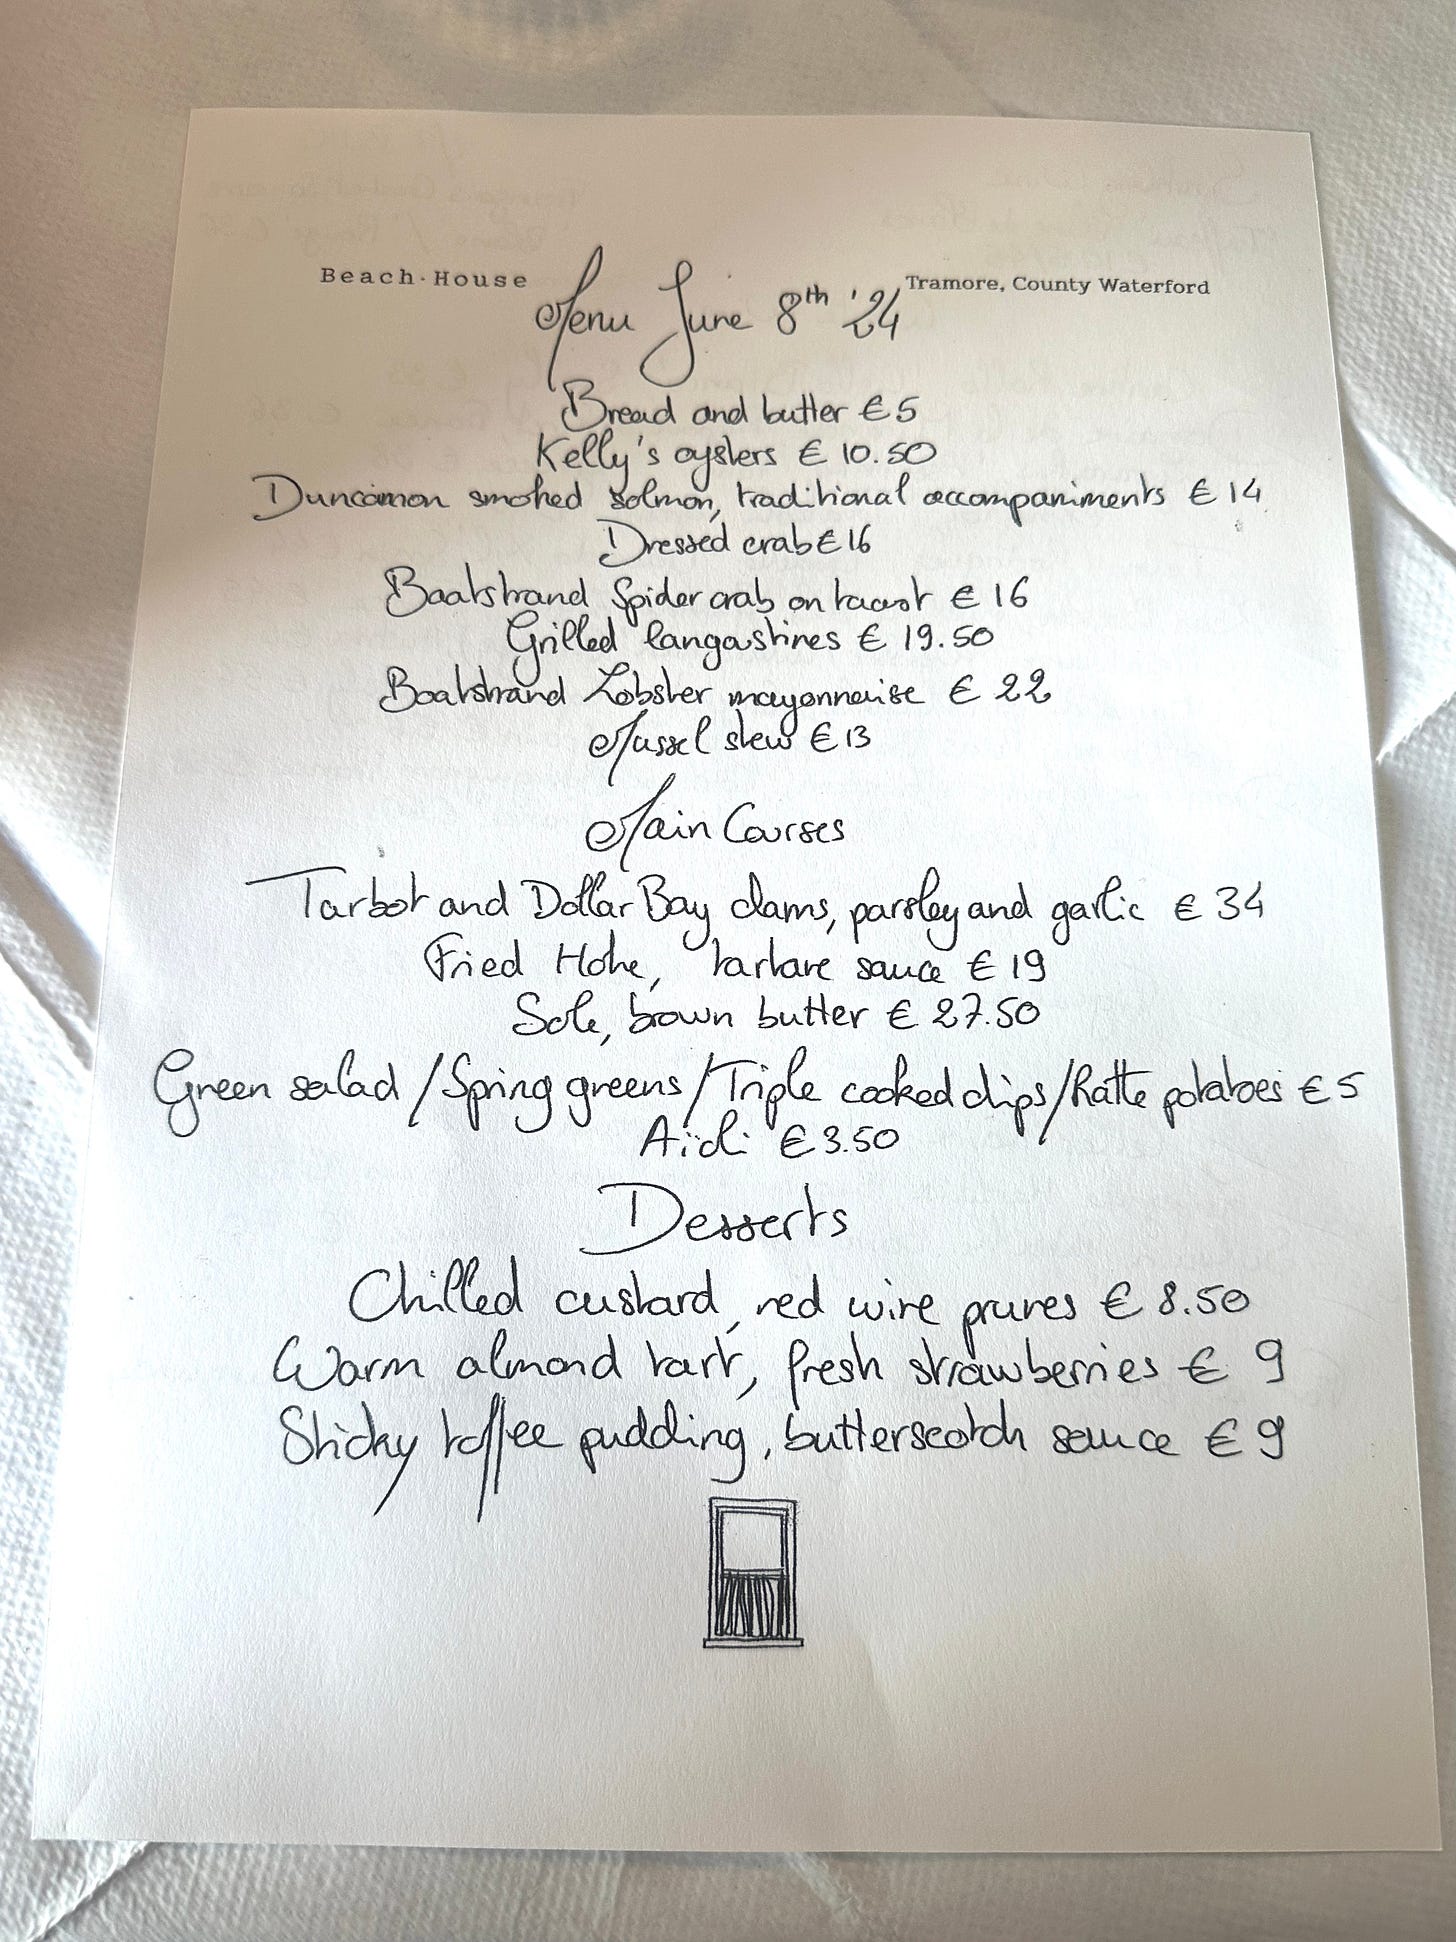 Beach·House
Tramore, County Waterford
Menu June 8th '24
Bread and butter €5
Kelly's oysters €10.50
Duncannon smoked salmon, traditional accompaniments €14
Dressed crab €16
Boatstrand Spider crab on toast €16
Grilled langoustines €19.50
Boatstrand Lobster mayonnaise €22
Mussel stew €13
Main Courses
Turbot and Dollar Bay clams, parsley and garlic €34
Fried Hake, tartare sauce €19
Sole, brown butter €27.50
Green salad / Spring greens / Triple cooked chips / Ratte potatoes €5
Aïoli €3.50
Desserts
Chilled custard, red wine prunes €8.50
Warm almond tart, fresh strawberries €9
Sticky toffee pudding, butterscotch sauce €9